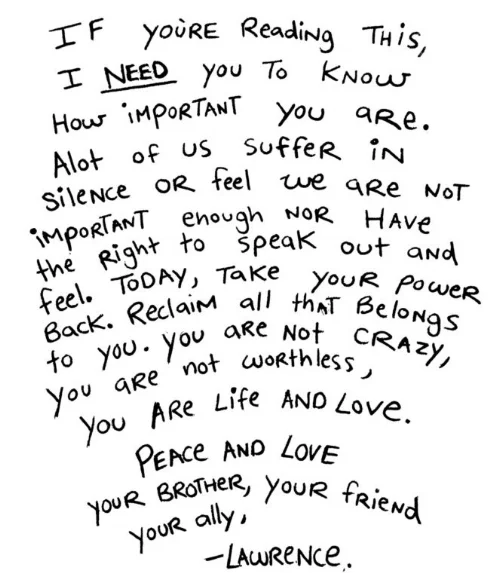 IF YOU'RE Reading THis,
I NEED you To KNOW
How iMPORTANT you aRe.
Alot of US SuffeR iN
SileNce OR feel we aRE NOT
iMPORTANT enough NOR HAVE
the Right to speak out AND
feel. TODAY, TAKE youR PoweR
BACK. Reclaim all thAT BeloNgs
to you. you aRE NOT CRAZY,
you aRE not woRthless,
you ARe Life AND Love.
PEAce AND LOVE
youR BROTHeR, youR fRiend
youR ally,
-LAWRENCE.